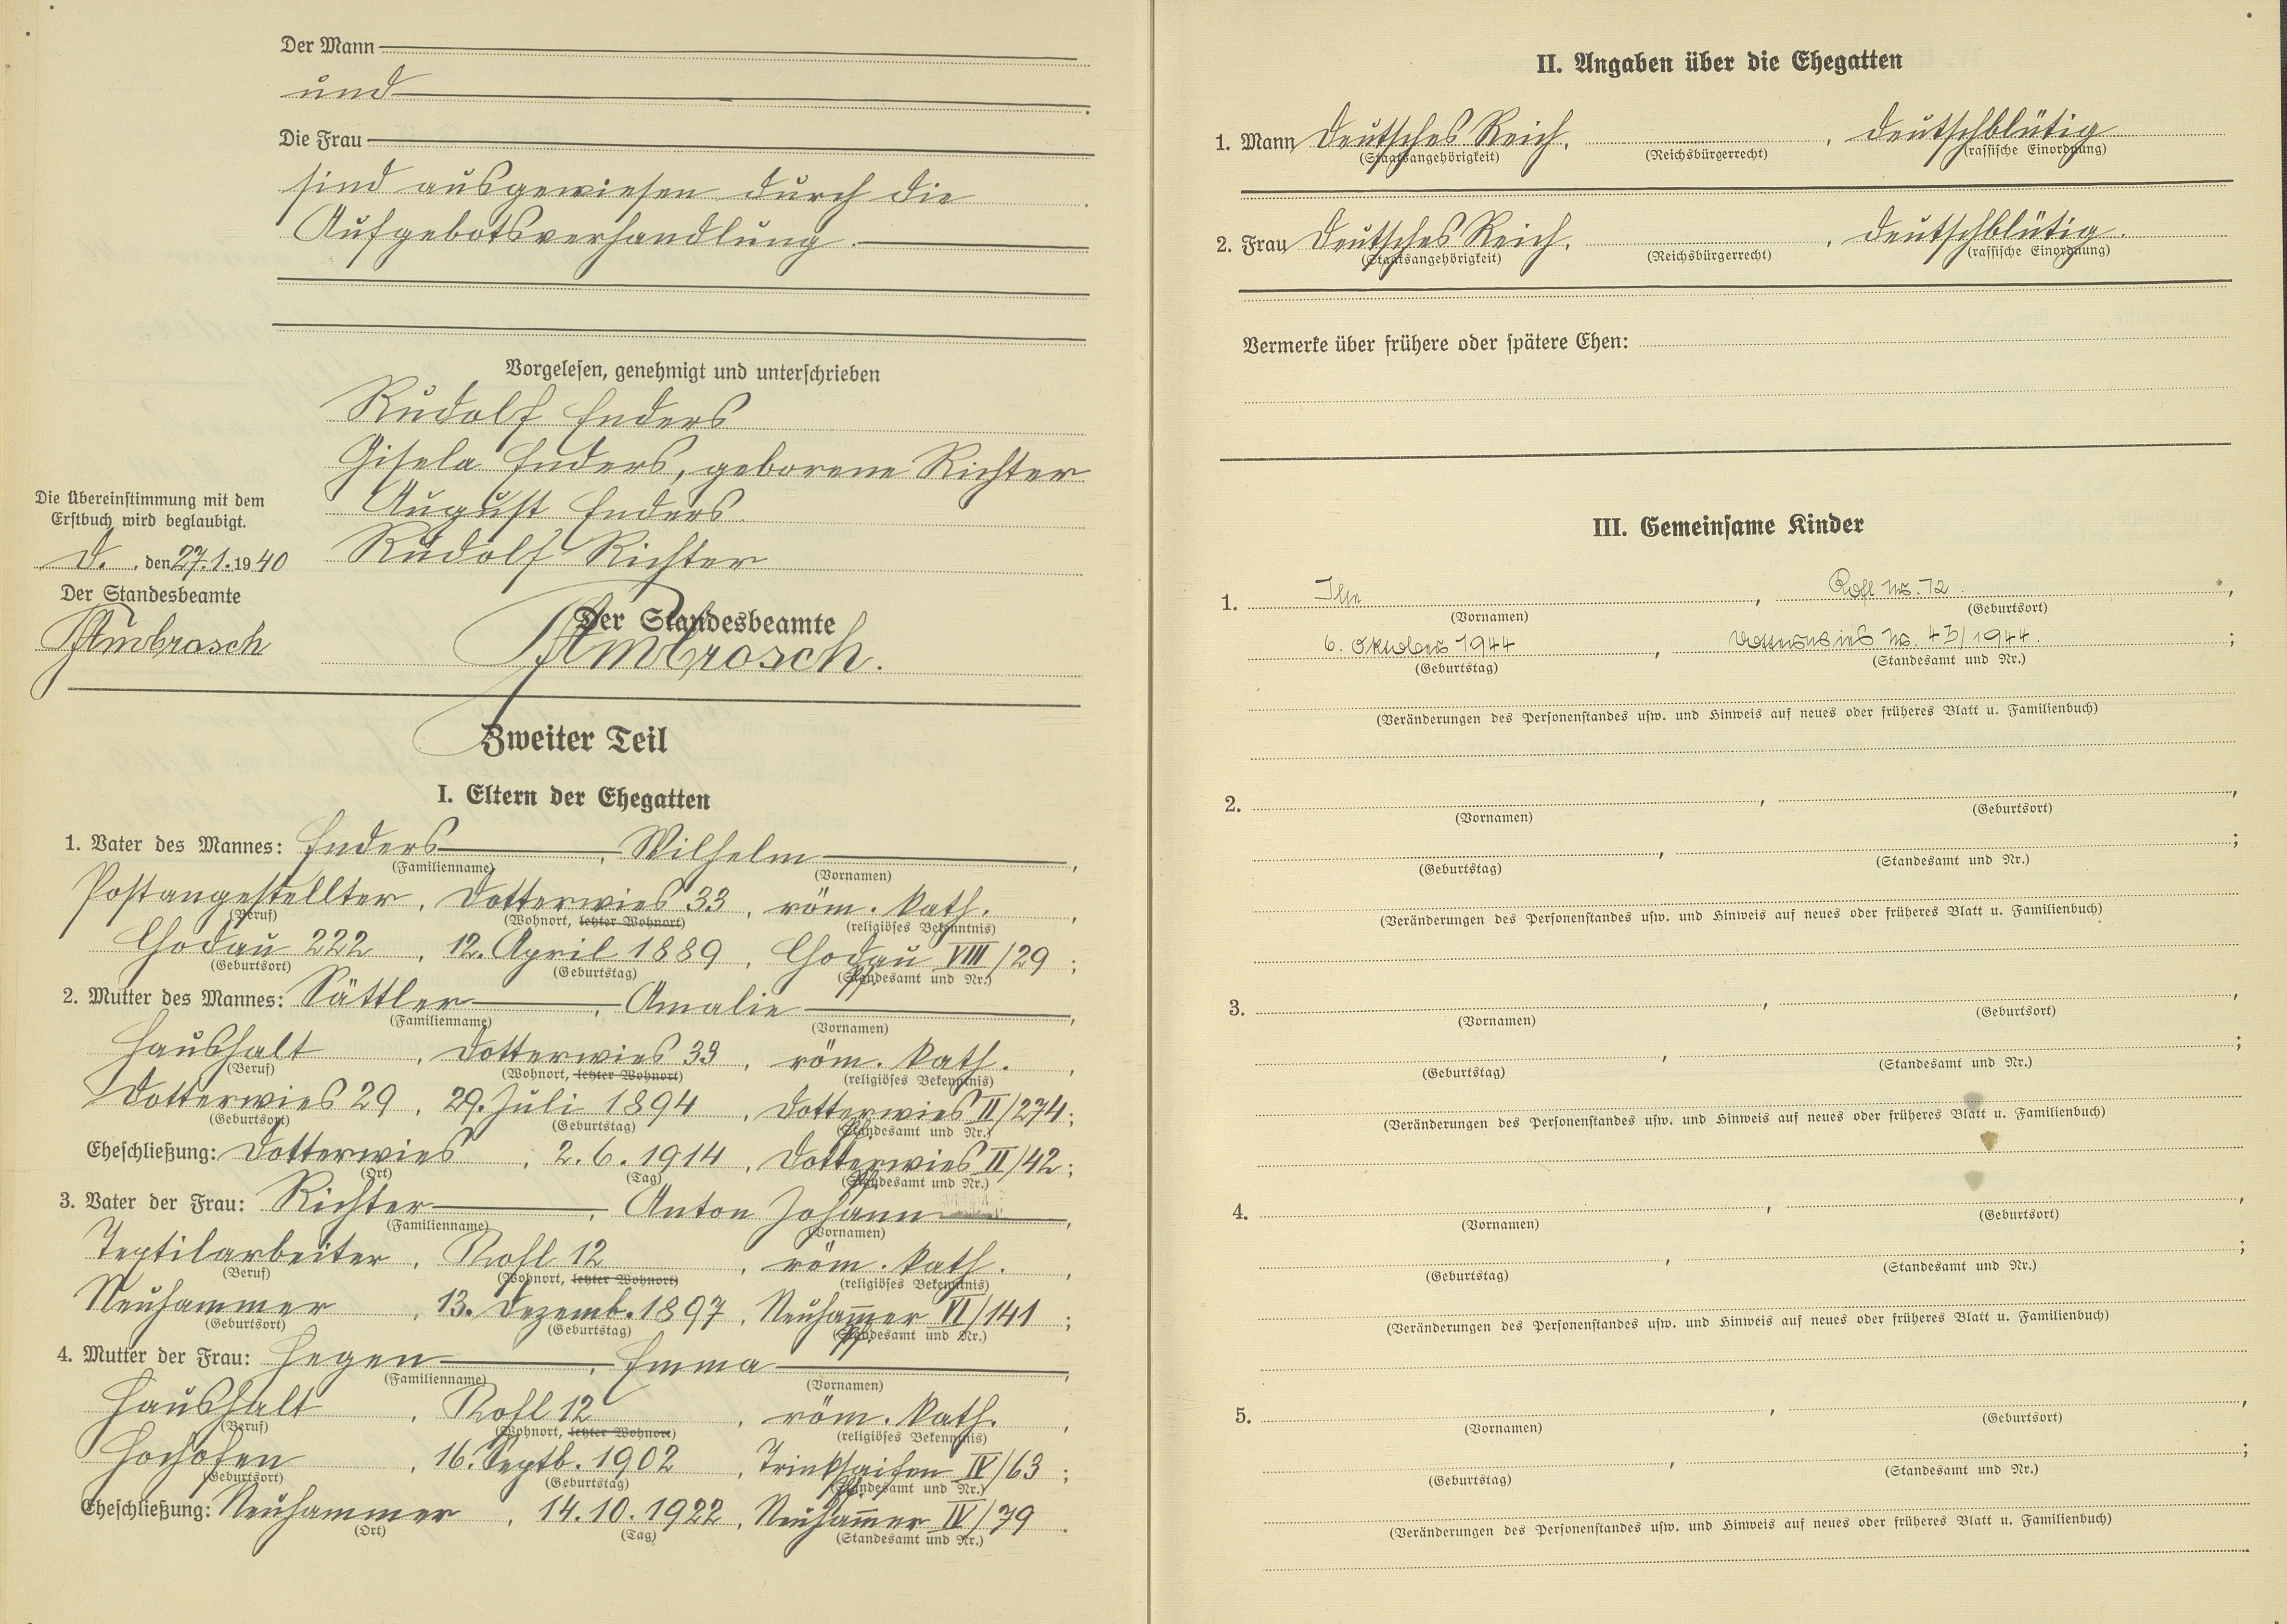 Der Mann
und
Die Frau
sind ausgewiesen durch die
Aufgebotsverhandlung.
Vorgelesen, genehmigt und unterschrieben
Rudolf Enders
Gisela Enders, geborene Richter
August Enders
Rudolf Richter
Die Übereinstimmung mit dem
Erstbuch wird beglaubigt.
D. , den 27.1.1940
Der Standesbeamte
Ambrosch
Der Standesbeamte
Ambrosch.
Zweiter Teil
I. Eltern der Ehegatten
1. Vater des Mannes: Enders, Wilhelm,
(Familienname) (Vornamen)
Postangestellter, Dotterwies 33, röm. kath.,
(Beruf) (Wohnort, letzter Wohnort) (religiöses Bekenntnis)
Chodau 222, 12. April 1889, Chodau VIII/29;
(Geburtsort) (Geburtstag) (Standesamt und Nr.)
2. Mutter des Mannes: Sättler, Amalie,
(Familienname) (Vornamen)
Haushalt, Dotterwies 33, röm. kath.,
(Beruf) (Wohnort, letzter Wohnort) (religiöses Bekenntnis)
Dotterwies 29, 29. Juli 1894, Dotterwies II/274;
(Geburtsort) (Geburtstag) (Standesamt und Nr.)
Eheschließung: Dotterwies, 2.6.1914, Dotterwies II/42;
(Ort) (Tag) (Standesamt und Nr.)
3. Vater der Frau: Richter, Anton Johann,
(Familienname) (Vornamen)
Textilarbeiter, Roßl 12, röm. kath.,
(Beruf) (Wohnort, letzter Wohnort) (religiöses Bekenntnis)
Neuhammer, 13. Dezemb. 1897, Neuham̄er VI/141;
(Geburtsort) (Geburtstag) (Standesamt und Nr.)
4. Mutter der Frau: Hegen, Emma,
(Familienname) (Vornamen)
Haushalt, Roßl 12, röm. kath.,
(Beruf) (Wohnort, letzter Wohnort) (religiöses Bekenntnis)
Hochofen, 16. Septb. 1902, Trinksaifen IV/63;
(Geburtsort) (Geburtstag) (Standesamt und Nr.)
Eheschließung: Neuhammer, 14.10.1922, Neuham̄er IV/79.
(Ort) (Tag) (Standesamt und Nr.)
II. Angaben über die Ehegatten
1. Mann Deutsches Reich, , deutschblütig
(Staatsangehörigkeit) (Reichsbürgerrecht) (rassische Einordnung)
2. Frau Deutsches Reich, , deutschblütig.
(Staatsangehörigkeit) (Reichsbürgerrecht) (rassische Einordnung)
Vermerke über frühere oder spätere Ehen:
III. Gemeinsame Kinder
1. Ilse, Nr. 12,
(Vornamen) (Geburtsort)
6. Oktober 1944, Dotterwies Nr. 43/1944.;
(Geburtstag) (Standesamt und Nr.)
(Veränderungen des Personenstandes usw. und Hinweis auf neues oder früheres Blatt u. Familienbuch)
2. , ,
(Vornamen) (Geburtsort)
, ;
(Geburtstag) (Standesamt und Nr.)
(Veränderungen des Personenstandes usw. und Hinweis auf neues oder früheres Blatt u. Familienbuch)
3. , ,
(Vornamen) (Geburtsort)
, ;
(Geburtstag) (Standesamt und Nr.)
(Veränderungen des Personenstandes usw. und Hinweis auf neues oder früheres Blatt u. Familienbuch)
4. , ,
(Vornamen) (Geburtsort)
, ;
(Geburtstag) (Standesamt und Nr.)
(Veränderungen des Personenstandes usw. und Hinweis auf neues oder früheres Blatt u. Familienbuch)
5. , ,
(Vornamen) (Geburtsort)
, ;
(Geburtstag) (Standesamt und Nr.)
(Veränderungen des Personenstandes usw. und Hinweis auf neues oder früheres Blatt u. Familienbuch)